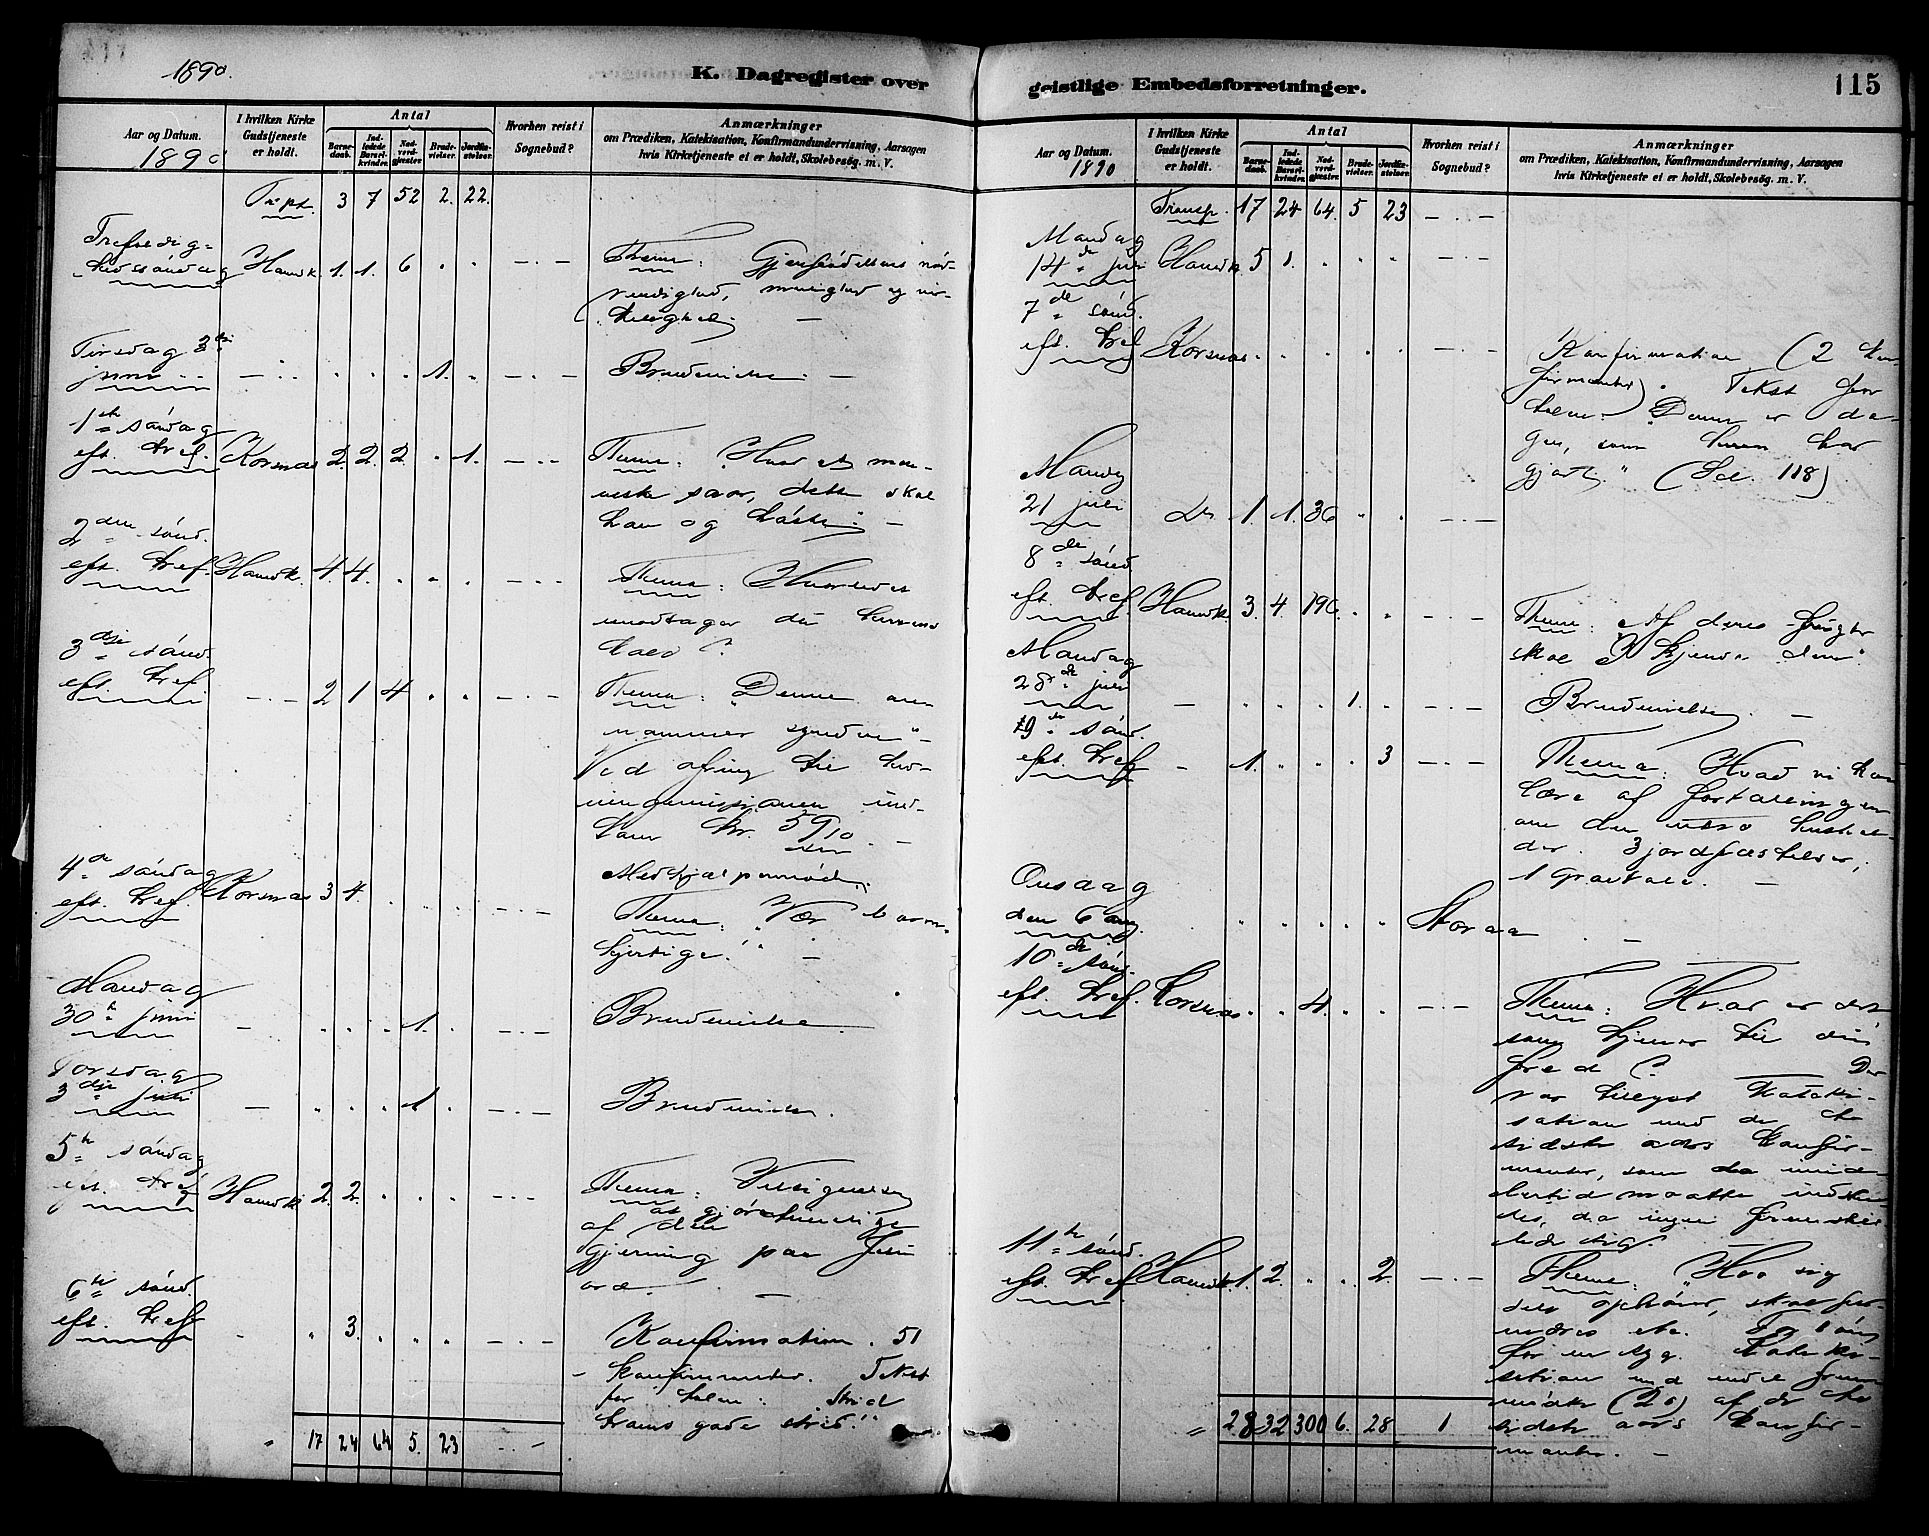 1890.
K. Dagregister over
Aar og Datum.
1890
I hvilken Kirke
Gudstjeneste
er holdt.
Antal
Barne-
daab.
Ind-
ledede
Barsel-
kvinder.
Nad-
verd-
gjester.
Brude-
vielser.
Jordfæ-
stelser.
Hvorhen reist i
Sognebud?
Anmærkninger
om Prædiken, Katekisation, Konfirmandundervisning, Aarsagen
hvis Kirketjeneste ei er holdt, Skolebesög. m. V.
3 7 52 2. 22.
Trefoldig-
hedssöndag Hamdk. 1. 1. 6 " " - " - Thema: Gjenfödelsens nöd-
vendighed, mulighed og vir-
kelighed. -
Tirsdag 3die
juni " " " " " 1. " - " - Brudevielse. -
1ste söndag
eft. tref. Korsnæs 2. 2. 2. " 1. - " - Thema: "Hvad et men-
neske saar, dette skal
han og höste". -
2den sönd.
eft. tref. Hamdk. 4 4. " " " - " - Thema: Hvorledes
modtager du Herrens
kald?
3die sönd.
eft. tref. - " - 2 1 4 " " - " - Thema: "Denne an-
nammer syndere" -
Ved ofring til hed-
ningemissionen ind-
kom kr. 5910. -
4de söndag
eft. tref. Korsnæs 3 4. " " " - " - Medhjælpermöde.
Thema: "Vær barm-
hjertige!" -
Mandag
30te juni - " " " 1. " - " - Brudevielse.
Torsdag
3die juli - " " " 1 " - " - Brudevielse.
5te söndag
eft. tref. Hamdk. 2. 2. " " " - " - Thema: Velsignelsen
af den
gjerning paa Jesu
ord. -
6te sönd.
eft. tref. - " 3. " " " - " - Konfirmation. 51
konfirmander. Tekst
for talen: "Strid
troens gode strid"
" 17 24 64 5. 23 - " -
geistlige Embedsforretninger.
115
Aar og Datum.
1890
I hvilken Kirke
Gudstjeneste
er holdt.
Antal
Barne-
daab.
Ind-
ledede
Barsel-
kvinder.
Nad-
verd-
gjester.
Brude-
vielser.
Jordfæ-
stelser.
Hvorhen reist i
Sognebud?
Anmærkninger
om Prædiken, Katekisation, Konfirmandundervisning, Aarsagen
hvis Kirketjeneste ei er holdt, Skolebesög. m. V.
Transp. 17 24 64. 5 23 - " -
Mandag
14de juli Hamdk. 5 1. " " " - " -
7de sönd.
eft. tref. Korsnæs " " " " " - " - Konfirmation (2 kon-
firmander). Tekst for
talen: "Denne er da-
gen, som Herren har
gjort." (Sal. 118)
Mandag
21 juli Do 1. 1. 36 " " - " -
8de sönd.
eft. tref. Hamdk. 3. 4. 196. " " - " - Thema: "Af deres frugter
skal I kjende dem".
Mandag
28de juli - " " " 1. " - " - Brudevielse. -
9de sönd.
eft. tref. - 1. " " " 3 - " - Thema: Hvad vi kan
lære af fortællingen
om den utro hushol-
der. 3 jordfæstelser,
1 gravtale. -
Onsdag
den 6 aug. " " " " " Storaa -
10de sönd.
eft. tref. Korsnæs " " 4. " " - " - Thema: Hvad er det,
som tjener til din
fred? Der
var tillyst Kateki-
sation med de to
sidste aars konfir-
mander, som da imid-
lertid maatte indstil-
les, da ingen fremstil-
lede sig.
11te sönd.
eft. tref. Hamdk. 1. 2. " " 2. - " - Thema: "Hvo sig
selv ophöier, skal for-
nedres etc.
for en syg. Kateki-
sation med endel frem-
mödte (20) af de to
sidste aars konfir-
mander. -
" 28 32 300 6. 28 1